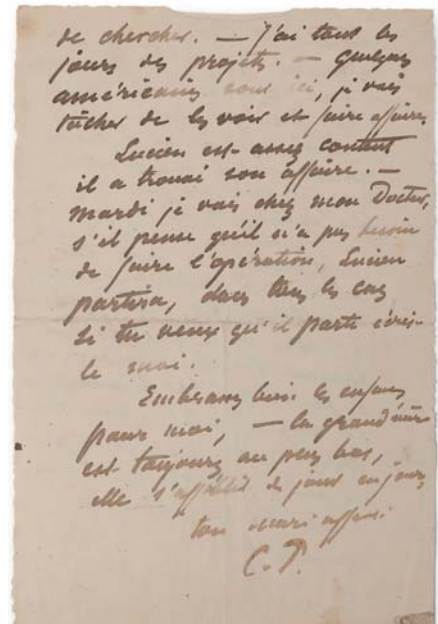 de chercher. — J'ai tous les
jours des projets. — quelques
américains sont ici, je vais
tâcher de les voir et faire affaires
Lucien est assez content
il a trouvé son affaire. —
mardi je vais chez mon Docteur,
s'il pense qu'il n'a pas besoin
de faire l'opération, Lucien
partira, dans tous les cas
si tu veux qu'il parte écris-
le moi.
Embrasse bien les enfants
pour moi, — la grand'mère
est toujours au plus bas,
elle s'affaiblit de jour en jour,
ton mari affec.
C. P.